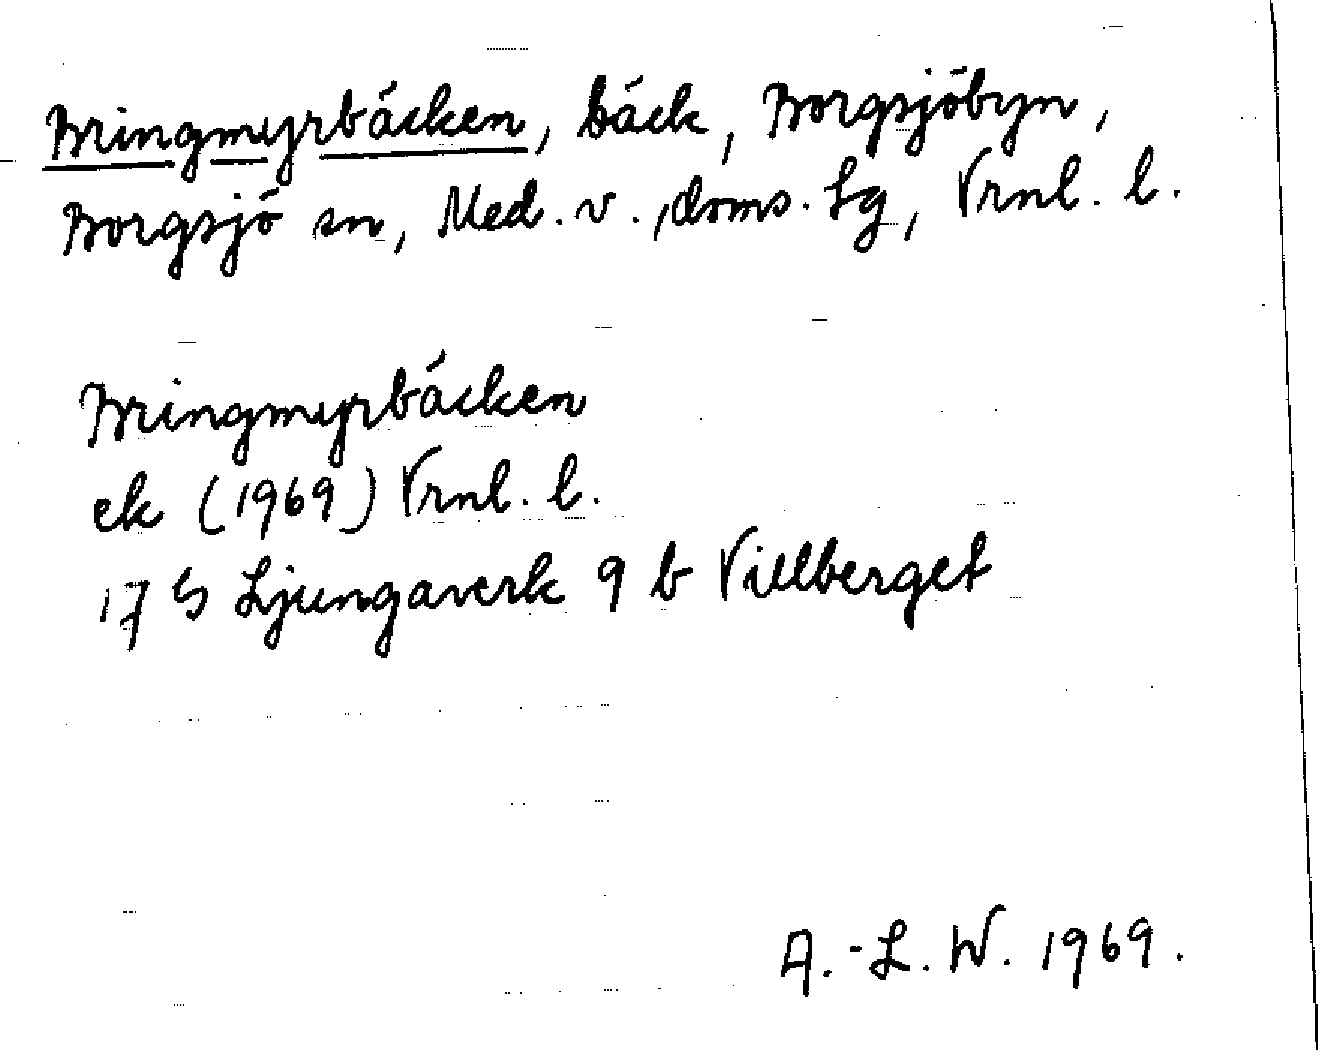 Bringmyrbäcken, bäck, Borgsjöbyn,
Borgsjö sn, Med. v., doms. Lg, Vrnl. l.
Bringmyrbäcken
ek (1969) Vrnl. l.
17 G Ljungaverk 9 b Villberget
A.-L. W. 1969.